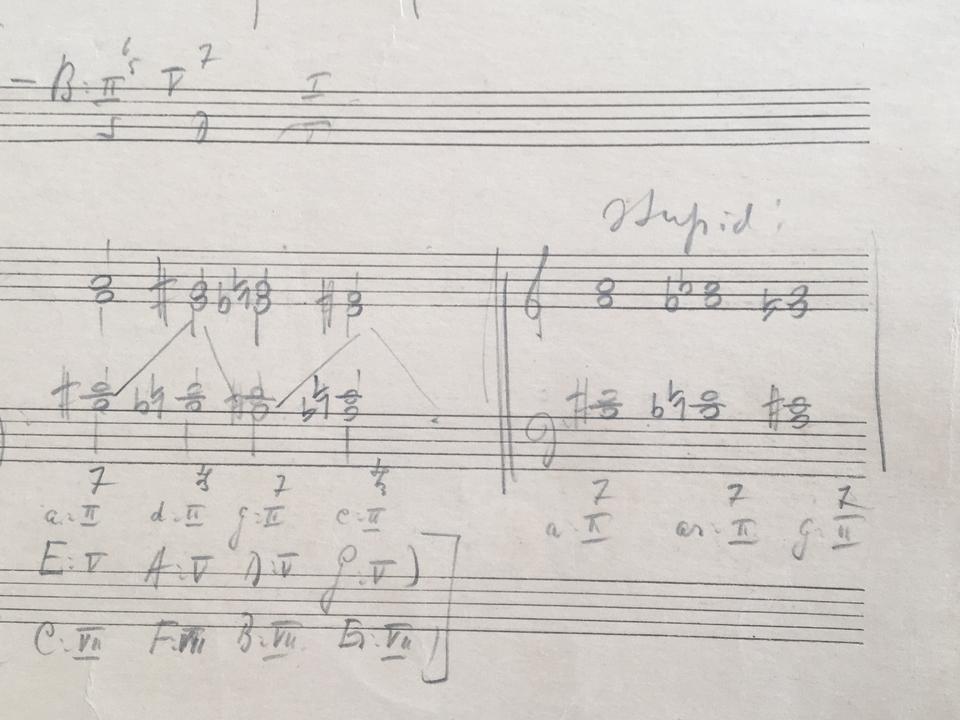 – B: II 6 5 V 7 I
Stupid:
7 4 3 7 4 3 7 7 7
a: II d: II g: II c: II a: II as: II g: II
E: V A: V D: V G: V )
C: VII F: VII B: VII Es: VII )